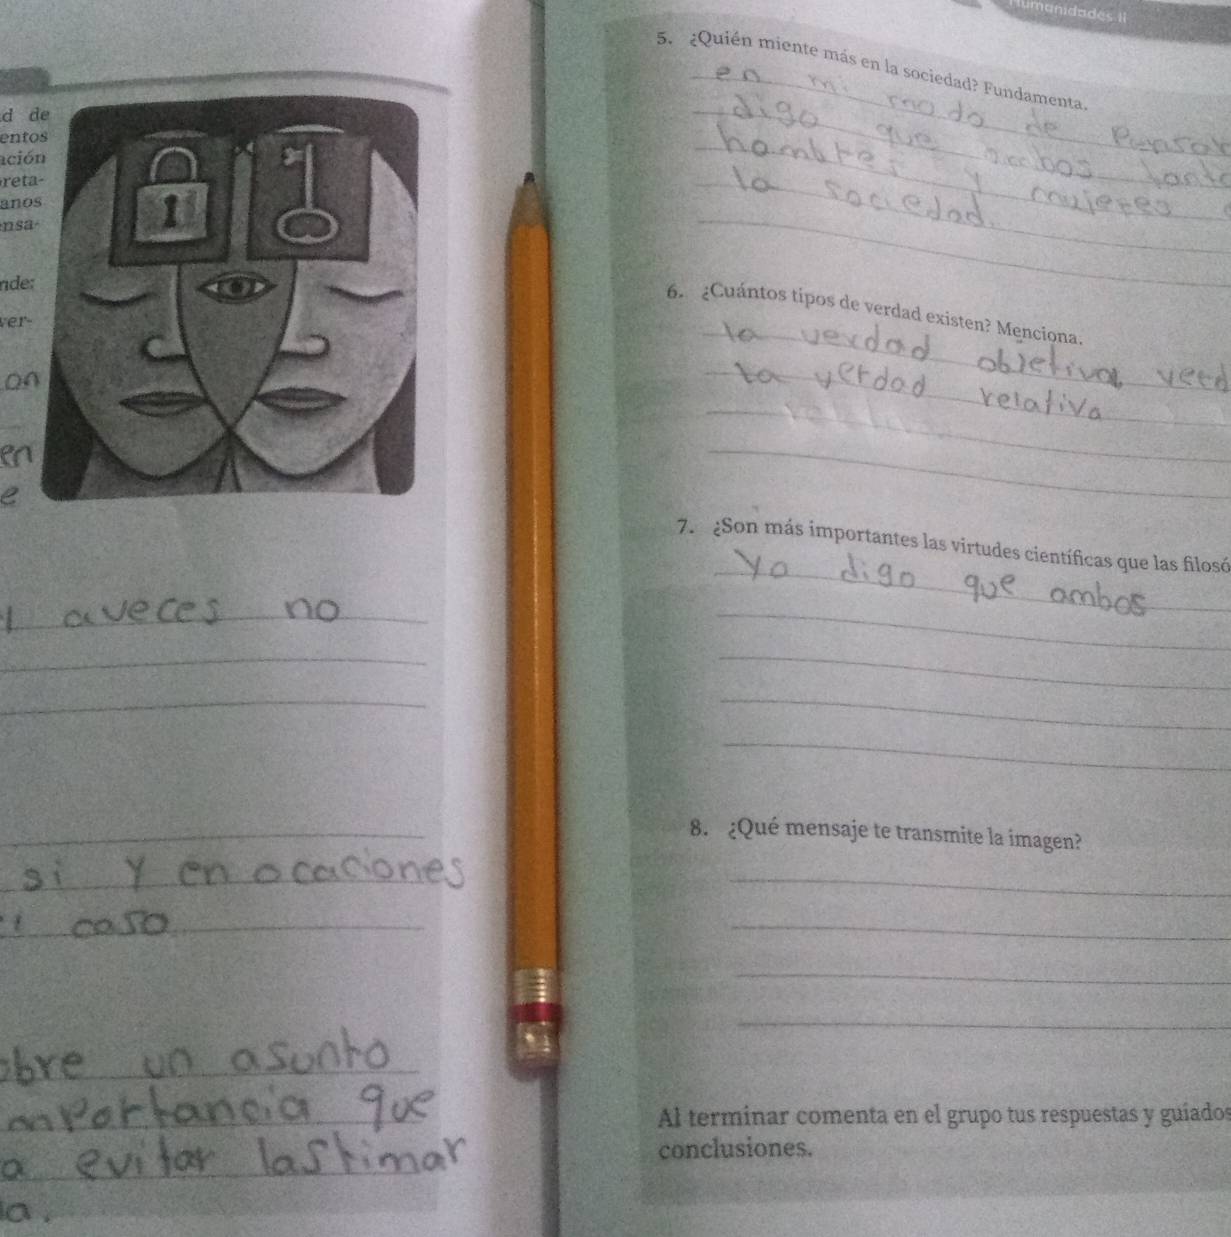 d de
entos
ación
reta-
anos
nsa-
nde:
ver-
on
en
e
aveces no
si y en ocaciones
caso
obre un asunto
importancia que
a evitar lastimar
la.
Humanidades II
5. ¿Quién miente más en la sociedad? Fundamenta.
en mi modo de pensar
digo que ambos tanto
hombres y mujeres
la sociedad.
6. ¿Cuántos tipos de verdad existen? Menciona.
la verdad objetiva, verd
la verdad relativa
7. ¿Son más importantes las virtudes científicas que las filosó
Yo digo que ambos
8. ¿Qué mensaje te transmite la imagen?
Al terminar comenta en el grupo tus respuestas y guiados
conclusiones.